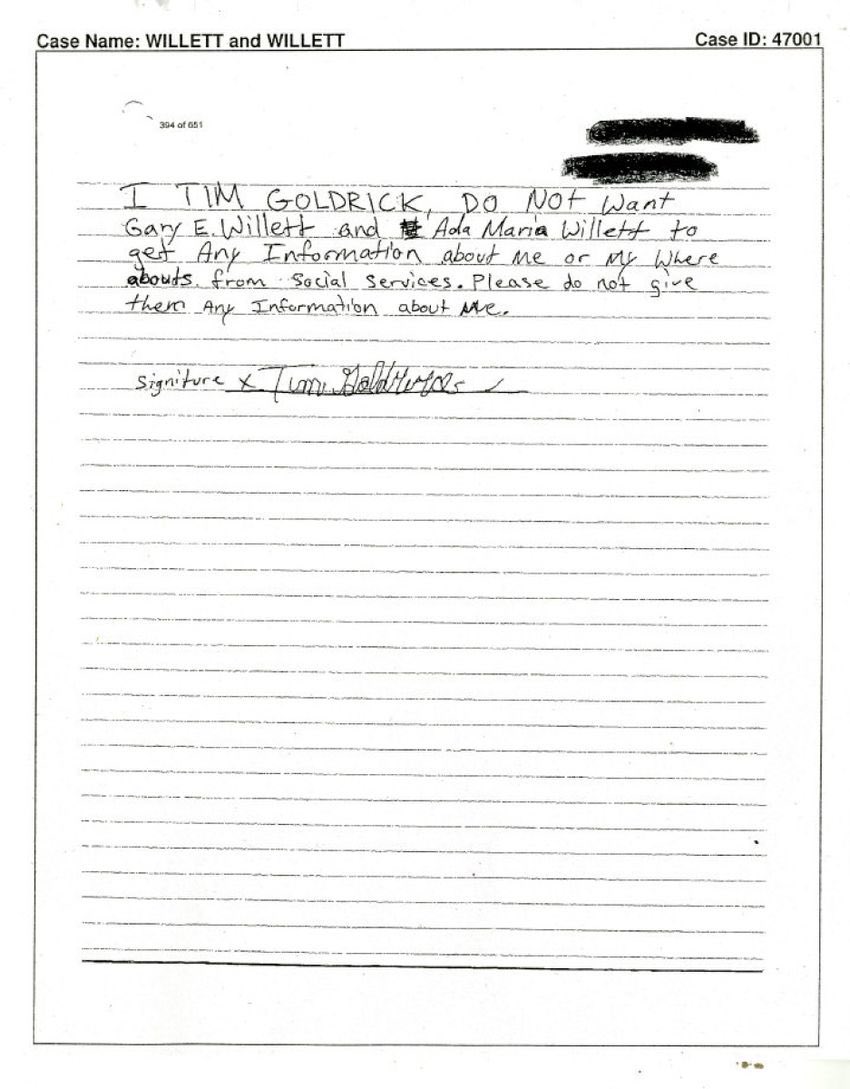 Case Name: WILLETT and WILLETT Case ID: 47001
394 of 651
I TIM GOLDRICK, DO NOt Want
Gary E. Willett and Ada Maria Willett to
get Any Information about Me or My Where
abouts from Social Services. Please do not give
them Any Information about Me.
Signiture x Tim